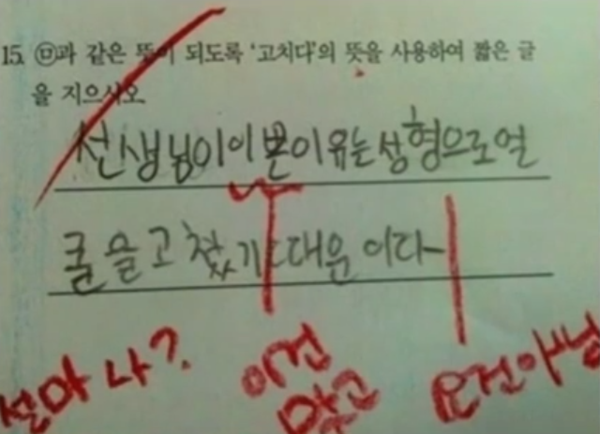 15. ㉤과 같은 뜻이 되도록 '고치다'의 뜻을 사용하여 짧은 글
을 지으시오.
선생님이이쁜이유는성형으로얼
굴을고쳤기대문이다
설마 나?
이건
맞고
요건아님